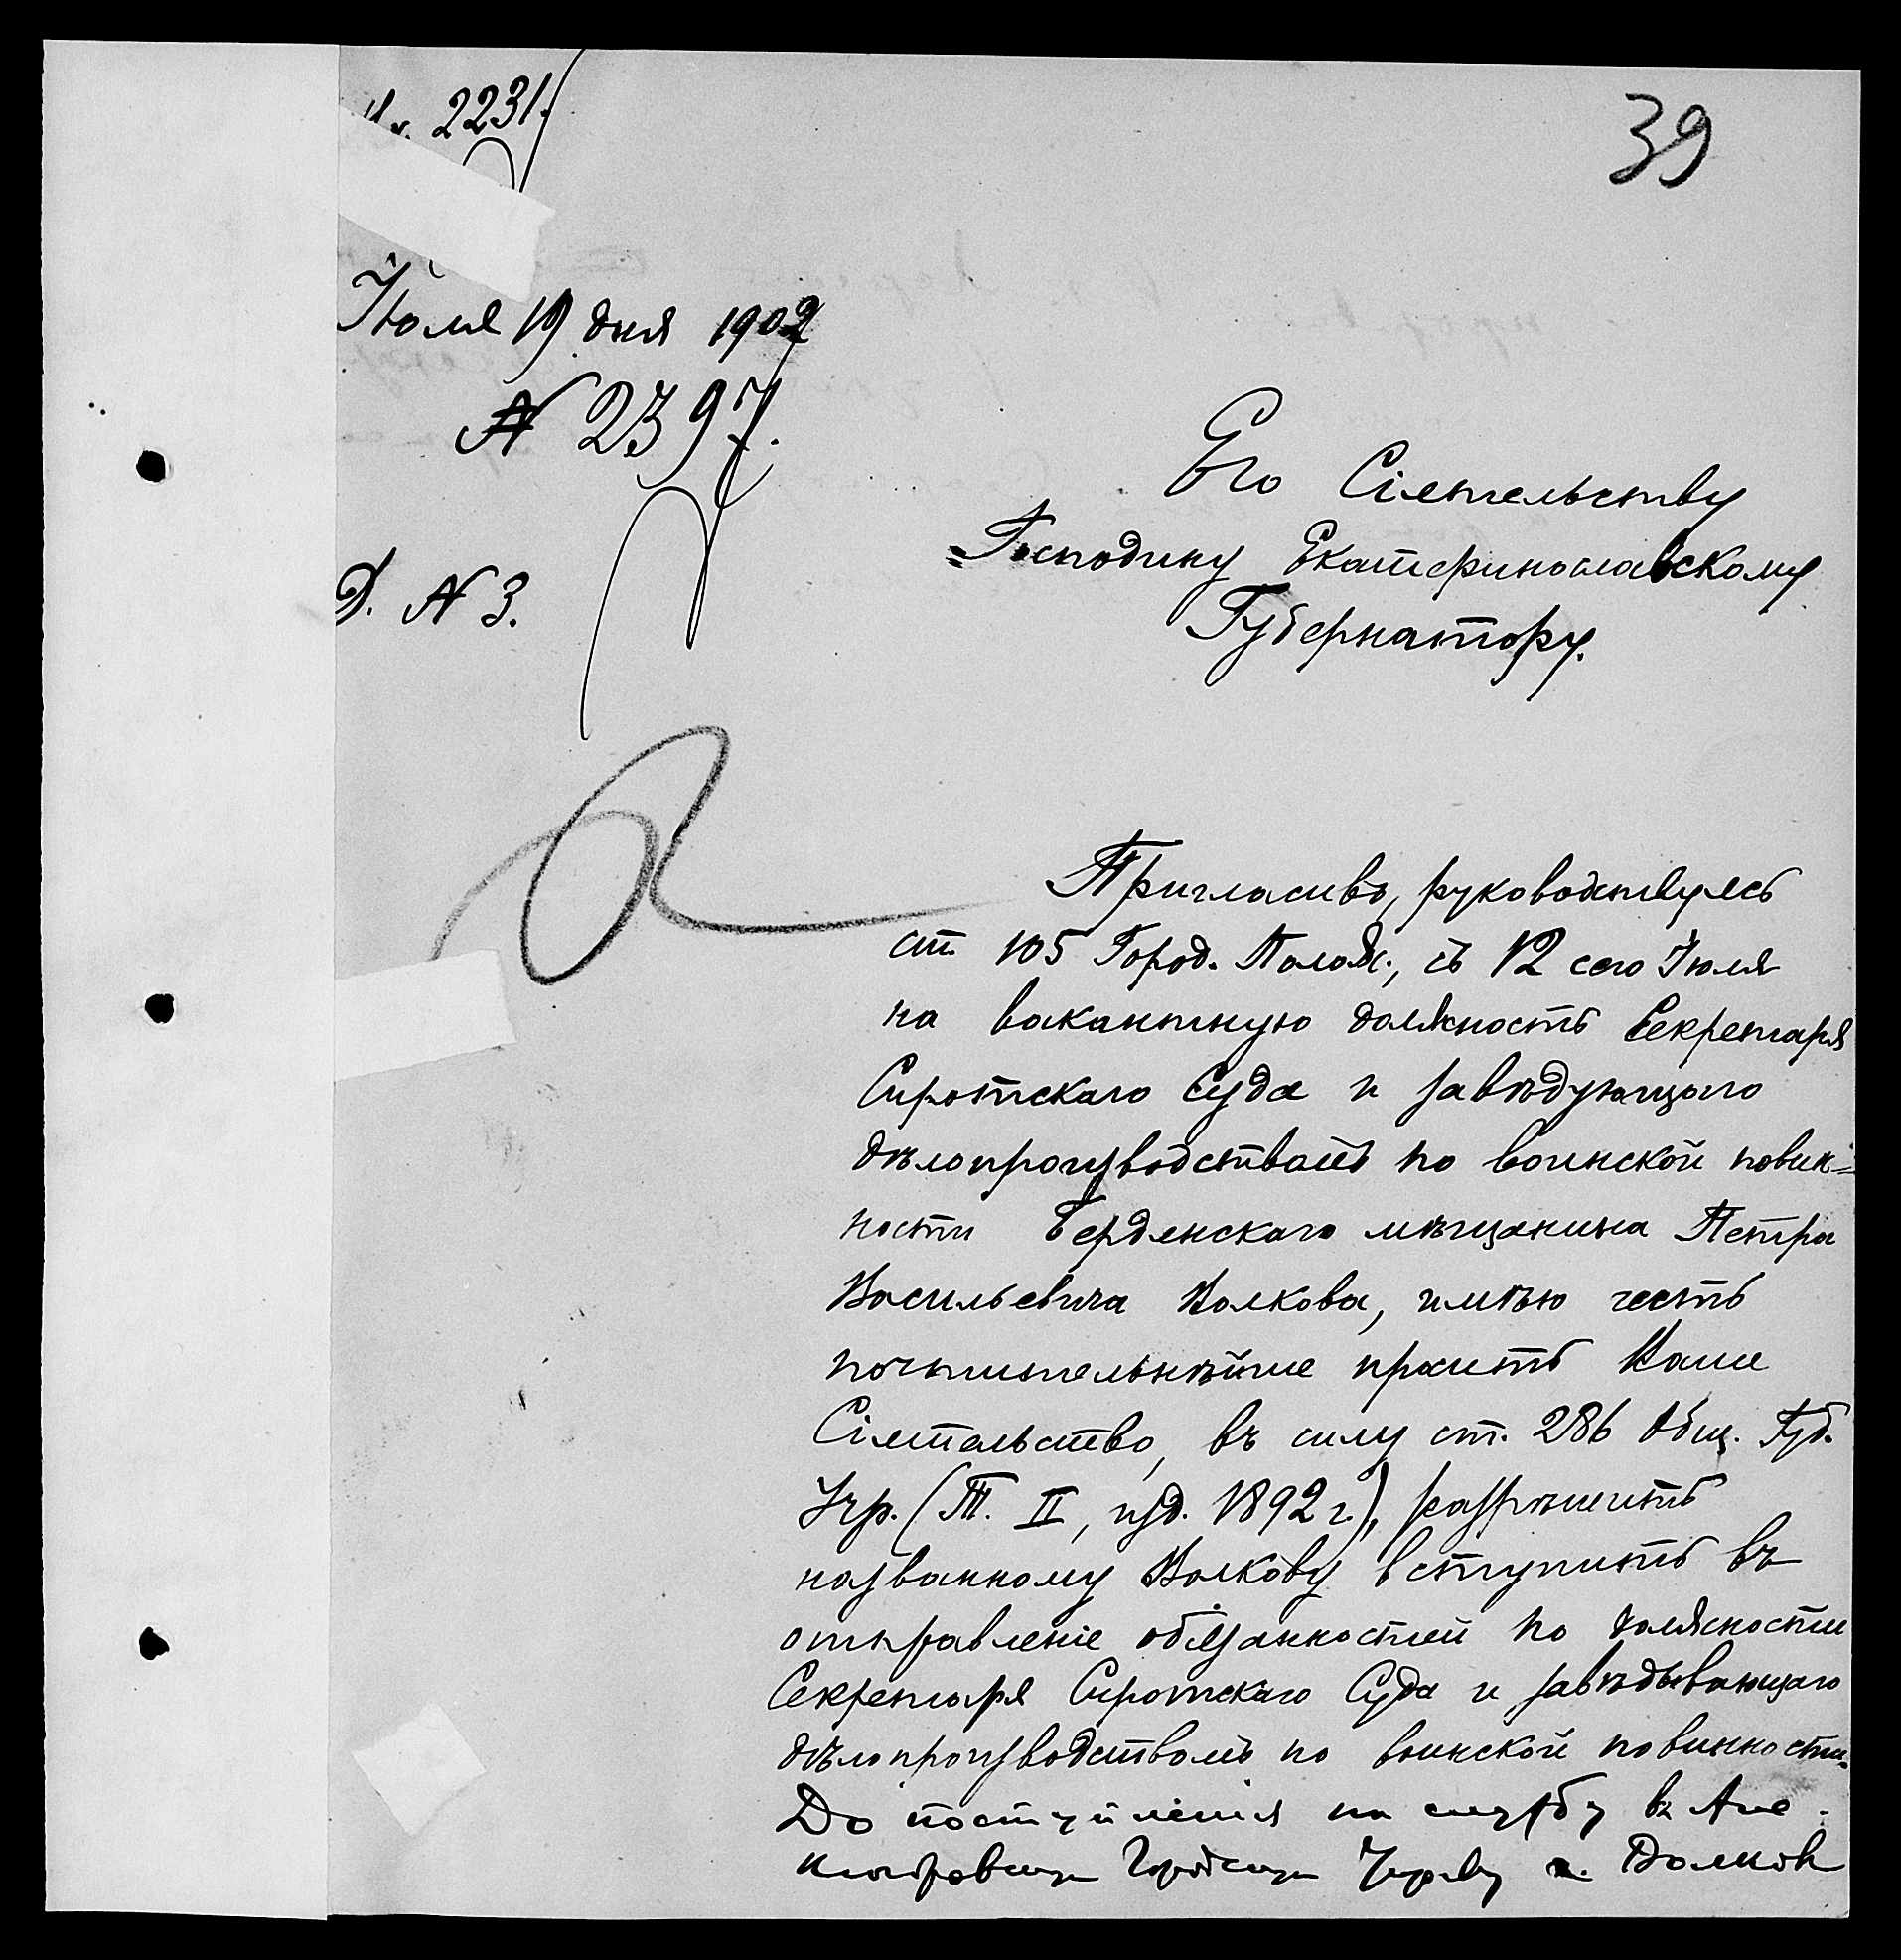 2231.
39
Іюля 19 дня 1902
№ 2397.
Его Сіятельству
Господину Екатеринославскому
Губернатору.
Д. № 3.
Пригласивъ, руководствуясь
ст. 105 Город. Полож., съ 12 сего Іюля
на вакантную должность Секретаря
Сиротскаго Суда и завѣдующаго
дѣлопроизводствомъ по воинской повин-
ности Бердянскаго мѣщанина Петра
Васильевича Волкова, имѣю честь
почтительнѣйше просить Ваше
Сіятельство, въ силу ст. 286 Общ. Губ.
Учр. (Т. II, изд. 1892 г.), разрѣшить
названному Волкову вступить въ
отправленіе обязанностей по должности
Секретаря Сиротскаго Суда и завѣдывающаго
дѣлопроизводствомъ по воинской повинности.
До поступленія на службу въ Але-
ксандровскую Городскую Управу г. Волковъ